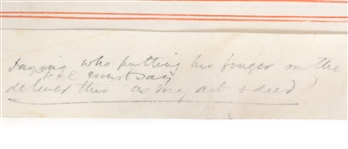 Dancing who putting his finger on the
seal must say
deliver this as my act & deed!